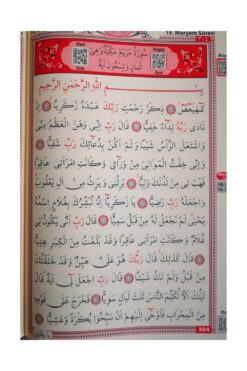 19. Meryem Sûresi
سُورَةُ مَرْيَمَ مَكِّيَّةٌ وَهِيَ
ثَمَانٍ وَتِسْعُونَ اٰيَةً
بِسْمِ اللّٰهِ الرَّحْمٰنِ الرَّحِيمِ
كٓهٰيٰعٓصٓ ذِكْرُ رَحْمَتِ رَبِّكَ عَبْدَهُ زَكَرِيَّا اِذْ
نَادٰى رَبَّهُ نِدَٓاءً خَفِيًّا قَالَ رَبِّ اِنّ۪ي وَهَنَ الْعَظْمُ مِنّ۪ي
وَاشْتَعَلَ الرَّأْسُ شَيْبًا وَلَمْ اَكُنْ بِدُعَٓائِكَ رَبِّ شَقِيًّا
وَاِنّ۪ي خِفْتُ الْمَوَالِيَ مِنْ وَرَٓاء۪ي وَكَانَتِ امْرَاَت۪ي عَاقِرًا
فَهَبْ ل۪ي مِنْ لَدُنْكَ وَلِيًّا يَرِثُن۪ي وَيَرِثُ مِنْ اٰلِ يَعْقُوبَ
وَاجْعَلْهُ رَبِّ رَضِيًّا يَا زَكَرِيَّٓا اِنَّا نُبَشِّرُكَ بِغُلَامٍۨ اسْمُهُ
يَحْيٰى لَمْ نَجْعَلْ لَهُ مِنْ قَبْلُ سَمِيًّا قَالَ رَبِّ اَنّٰى يَكُونُ ل۪ي
غُلَامٌ وَكَانَتِ امْرَاَت۪ي عَاقِرًا وَقَدْ بَلَغْتُ مِنَ الْكِبَرِ عِتِيًّا
قَالَ كَذٰلِكَ قَالَ رَبُّكَ هُوَ عَلَيَّ هَيِّنٌ وَقَدْ خَلَقْتُكَ
مِنْ قَبْلُ وَلَمْ تَكُ شَيْـًٔا قَالَ رَبِّ اجْعَلْ ل۪ٓي اٰيَةً قَالَ
اٰيَتُكَ اَلَّا تُكَلِّمَ النَّاسَ ثَلٰثَ لَيَالٍ سَوِيًّا فَخَرَجَ عَلٰى قَوْمِه۪
مِنَ الْمِحْرَابِ فَاَوْحٰٓى اِلَيْهِمْ اَنْ سَبِّحُوا بُكْرَةً وَعَشِيًّا
304